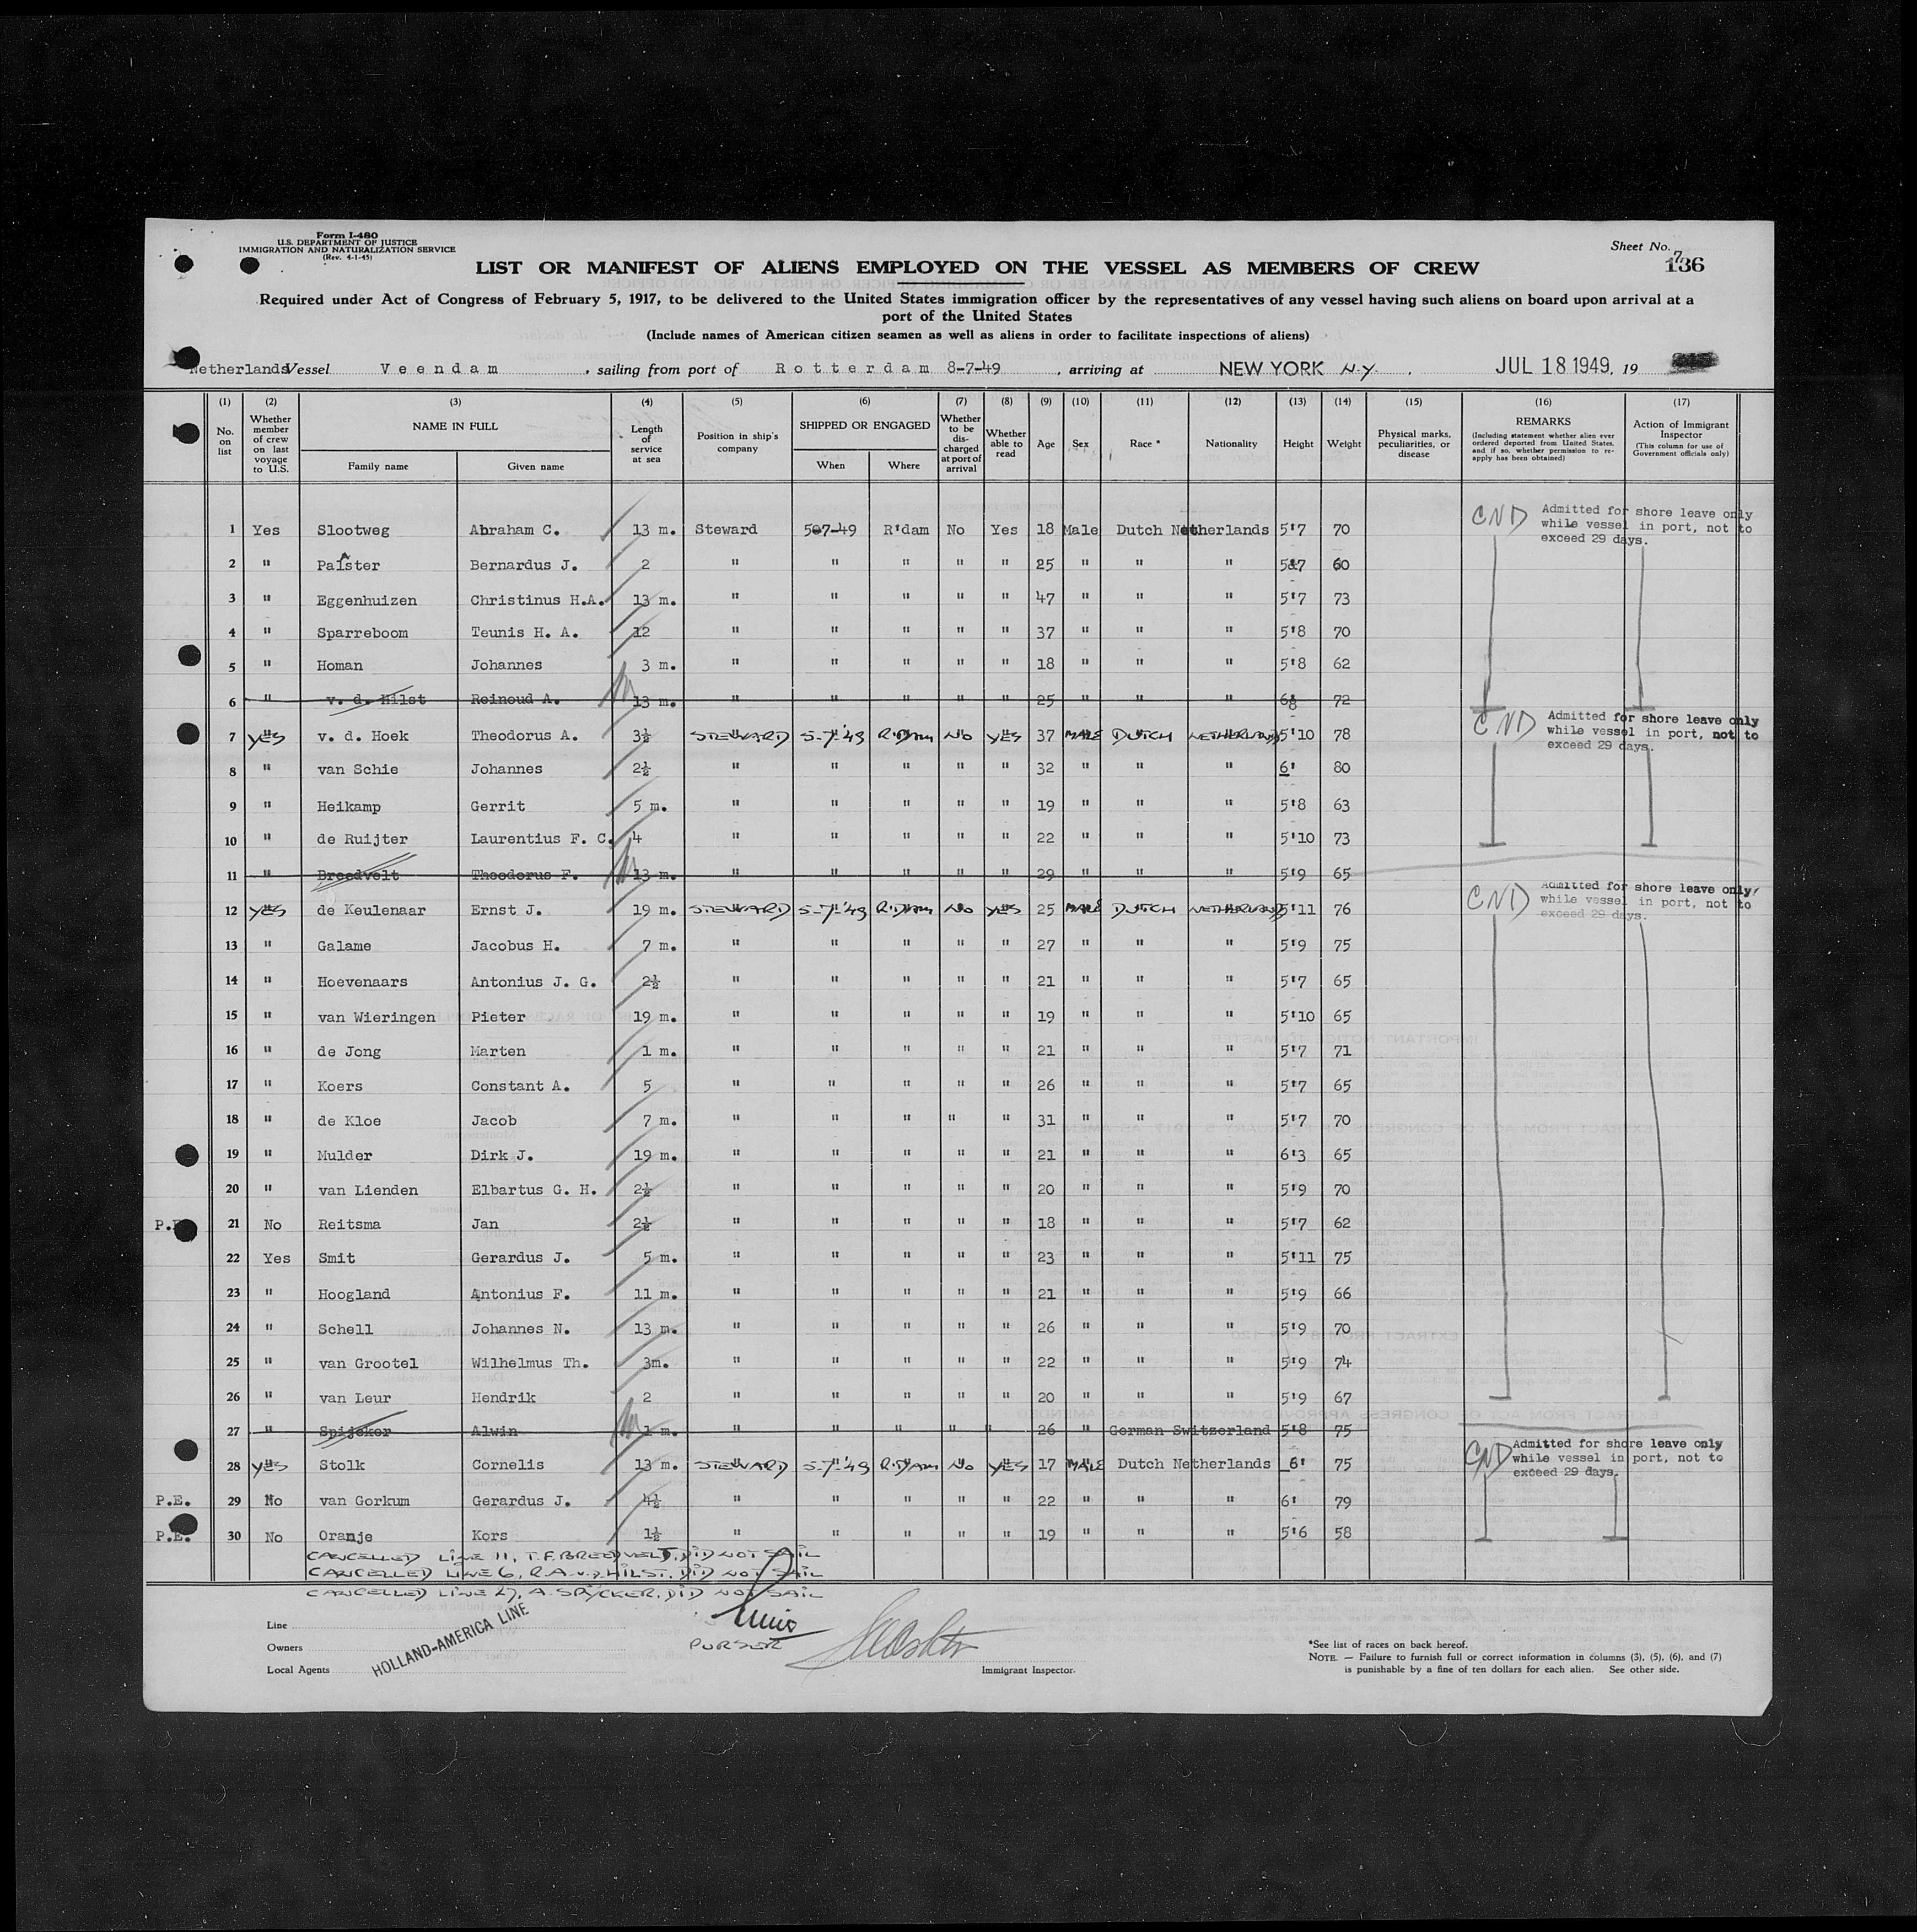 Form I-480
U.S. DEPARTMENT OF JUSTICE
IMMIGRATION AND NATURALIZATION SERVICE
(Rev. 4-1-45)
Sheet No. 7
136
LIST OR MANIFEST OF ALIENS EMPLOYED ON THE VESSEL AS MEMBERS OF CREW
Required under Act of Congress of February 5, 1917, to be delivered to the United States immigration officer by the representatives of any vessel having such aliens on board upon arrival at a
port of the United States
(Include names of American citizen seamen as well as aliens in order to facilitate inspections of aliens)
Netherlands Vessel Veendam, sailing from port of Rotterdam 8-7-49, arriving at NEW YORK N.Y. JUL 18 1949, 19
(1) (2) (3) (4) (5) (6) (7) (8) (9) (10) (11) (12) (13) (14) (15) (16) (17)
No. on list
Whether member of crew on last voyage to U.S.
NAME IN FULL
Family name
Given name
Length of service at sea
Position in ship's company
SHIPPED OR ENGAGED
When
Where
Whether to be discharged at port of arrival
Whether able to read
Age
Sex
Race *
Nationality
Height
Weight
Physical marks, peculiarities, or disease
REMARKS
(Including statement whether alien ever ordered deported from United States, and if so, whether permission to re-apply has been obtained)
Action of Immigrant Inspector
(This column for use of Government officials only)
1 Yes Slootweg Abraham C. 13 m. Steward 5-7-49 R'dam No Yes 18 Male Dutch Netherlands 5'7 70 CND Admitted for shore leave only while vessel in port, not to exceed 29 days.
2 " Palster Bernardus J. 2 " " " " " 25 " " " 5'7 60
3 " Eggenhuizen Christinus H.A. 13 m. " " " " " 47 " " " 5'7 73
4 " Sparreboom Teunis H. A. 12 " " " " " 37 " " " 5'8 70
5 " Homan Johannes 3 m. " " " " " 18 " " " 5'8 62
6 " v. d. Hilst Reinoud A. 13 m. " " " " " 25 " " " 6' 72
7 YES v. d. Hoek Theodorus A. 3½ STEWARD 5-7-'49 R'DAM NO YES 37 MALE DUTCH NETHERLANDS 5'10 78 CND Admitted for shore leave only while vessel in port, not to exceed 29 days.
8 " van Schie Johannes 2½ " " " " " 32 " " " 6' 80
9 " Heikamp Gerrit 5 m. " " " " " 19 " " " 5'8 63
10 " de Ruijter Laurentius F. C. 4 " " " " " 22 " " " 5'10 73
11 " Breedvelt Theodorus F. 13 m. " " " " " 29 " " " 5'9 65
12 YES de Keulenaar Ernst J. 19 m. STEWARD 5-7-'49 R'DAM NO YES 25 MALE DUTCH NETHERLANDS 5'11 76 CND Admitted for shore leave only while vessel in port, not to exceed 29 days.
13 " Galame Jacobus H. 7 m. " " " " " 27 " " " 5'9 75
14 " Hoevenaars Antonius J. G. 2½ " " " " " 21 " " " 5'7 65
15 " van Wieringen Pieter 19 m. " " " " " 19 " " " 5'10 65
16 " de Jong Marten 1 m. " " " " " 21 " " " 5'7 71
17 " Koers Constant A. 5 " " " " " 26 " " " 5'7 65
18 " de Kloe Jacob 7 m. " " " " " 31 " " " 5'7 70
19 " Mulder Dirk J. 19 m. " " " " " 21 " " " 6'3 65
20 " van Lienden Elbartus G. H. 2½ " " " " " 20 " " " 5'9 70
P.E. 21 No Reitsma Jan 2½ " " " " " 18 " " " 5'7 62
22 Yes Smit Gerardus J. 5 m. " " " " " 23 " " " 5'11 75
23 " Hoogland Antonius F. 11 m. " " " " " 21 " " " 5'9 66
24 " Schell Johannes N. 13 m. " " " " " 26 " " " 5'9 70
25 " van Grootel Wilhelmus Th. 3m. " " " " " 22 " " " 5'9 74
26 " van Leur Hendrik 2 " " " " " 20 " " " 5'9 67
27 " Spijcker Alwin 1 m. " " " " " 26 " German Switzerland 5'8 75
28 YES Stolk Cornelis 13 m. STEWARD 5-7-'49 R'DAM NO YES 17 MALE Dutch Netherlands 6' 75 CND Admitted for shore leave only while vessel in port, not to exceed 29 days.
P.E. 29 No van Gorkum Gerardus J. 4½ " " " " " 22 " " " 6' 79
P.E. 30 No Oranje Kors 1½ " " " " " 19 " " " 5'6 58
CANCELLED LINE 11, T.F. BREEDVELT, DID NOT SAIL
CANCELLED LINE 6, R.A. v.d. HILST, DID NOT SAIL
CANCELLED LINE 27, A. SPIJCKER, DID NOT SAIL
Line
Owners
Local Agents
HOLLAND-AMERICA LINE
PURSER
Immigrant Inspector.
*See list of races on back hereof.
NOTE. — Failure to furnish full or correct information in columns (3), (5), (6), and (7)
is punishable by a fine of ten dollars for each alien. See other side.